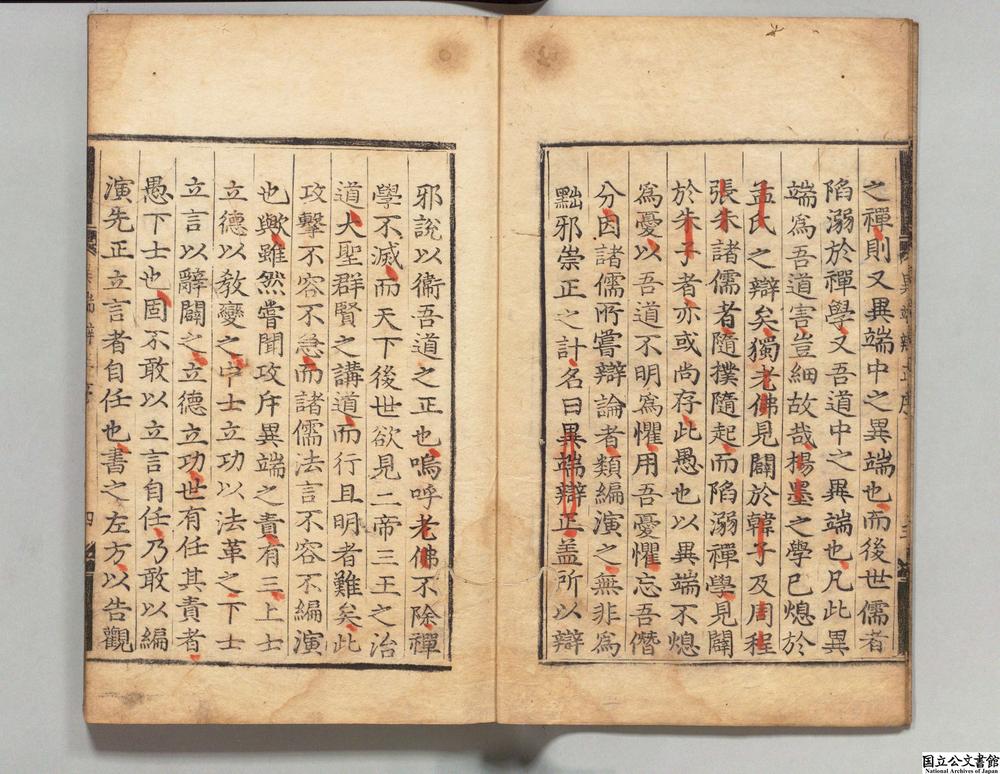 之禪則又異端中之異端也而後世儒者
陷溺於禪學又吾道中之異端也凡此異
端爲吾道害豈細故哉楊墨之學已熄於
孟氏之辯矣獨老佛見闢於韓子及周程
張朱諸儒者隨撲隨起而陷溺禪學見闢
於朱子者亦或尚存此愚也以異端不熄
爲憂以吾道不明爲懼用吾憂懼忘吾僭
分因諸儒所嘗辯論者類編演之無非爲
黜邪崇正之計名曰異端辯正盖所以辯
邪說以衞吾道之正也嗚呼老佛不除禪
學不滅而天下後世欲見二帝三王之治
道大聖群賢之講道而行且明者難矣此
攻擊不容不急而諸儒法言不容不編演
也歟雖然嘗聞攻斥異端之責有三上士
立德以敎變之中士立功以法革之下士
立言以辭闢之立德立功世有任其責者
愚下士也固不敢以立言自任乃敢以編
演先正立言者自任也書之左方以告觀
四
国立公文書館
National Archives of Japan